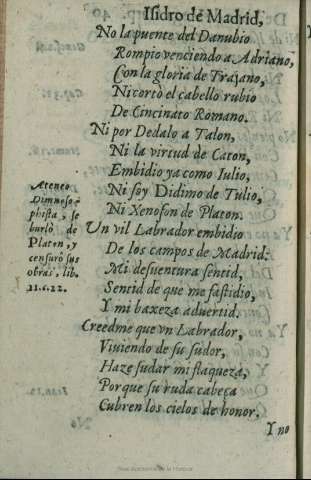 Isidro de Madrid,
No la puente del Danubio
Rompio venciendo a Adriano,
Con la gloria de Trajano,
Ni cortò el cabello rubio
De Cincinato Romano.
Ni por Dedalo a Talon,
Ni la virtud de Caton,
Embidio ya como Iulio,
Ni soy Didimo de Tulio,
Ni Xenofon de Platon.
Un vil Labrador embidio
De los campos de Madrid:
Mi desuentura sentid,
Sentid de que me fastidio,
Y mi baxeza aduertid.
Creedme que vn Labrador,
Viuiendo de su sudor,
Haze sudar mi flaqueza,
Porque su ruda cabeça
Cubren los cielos de honor.
Y no
Ateneo
Dimnoso-
phista, se
burlò de
Platon, y
censurò sus
obras, lib.
11.c.22.
Real Academia de la Historia